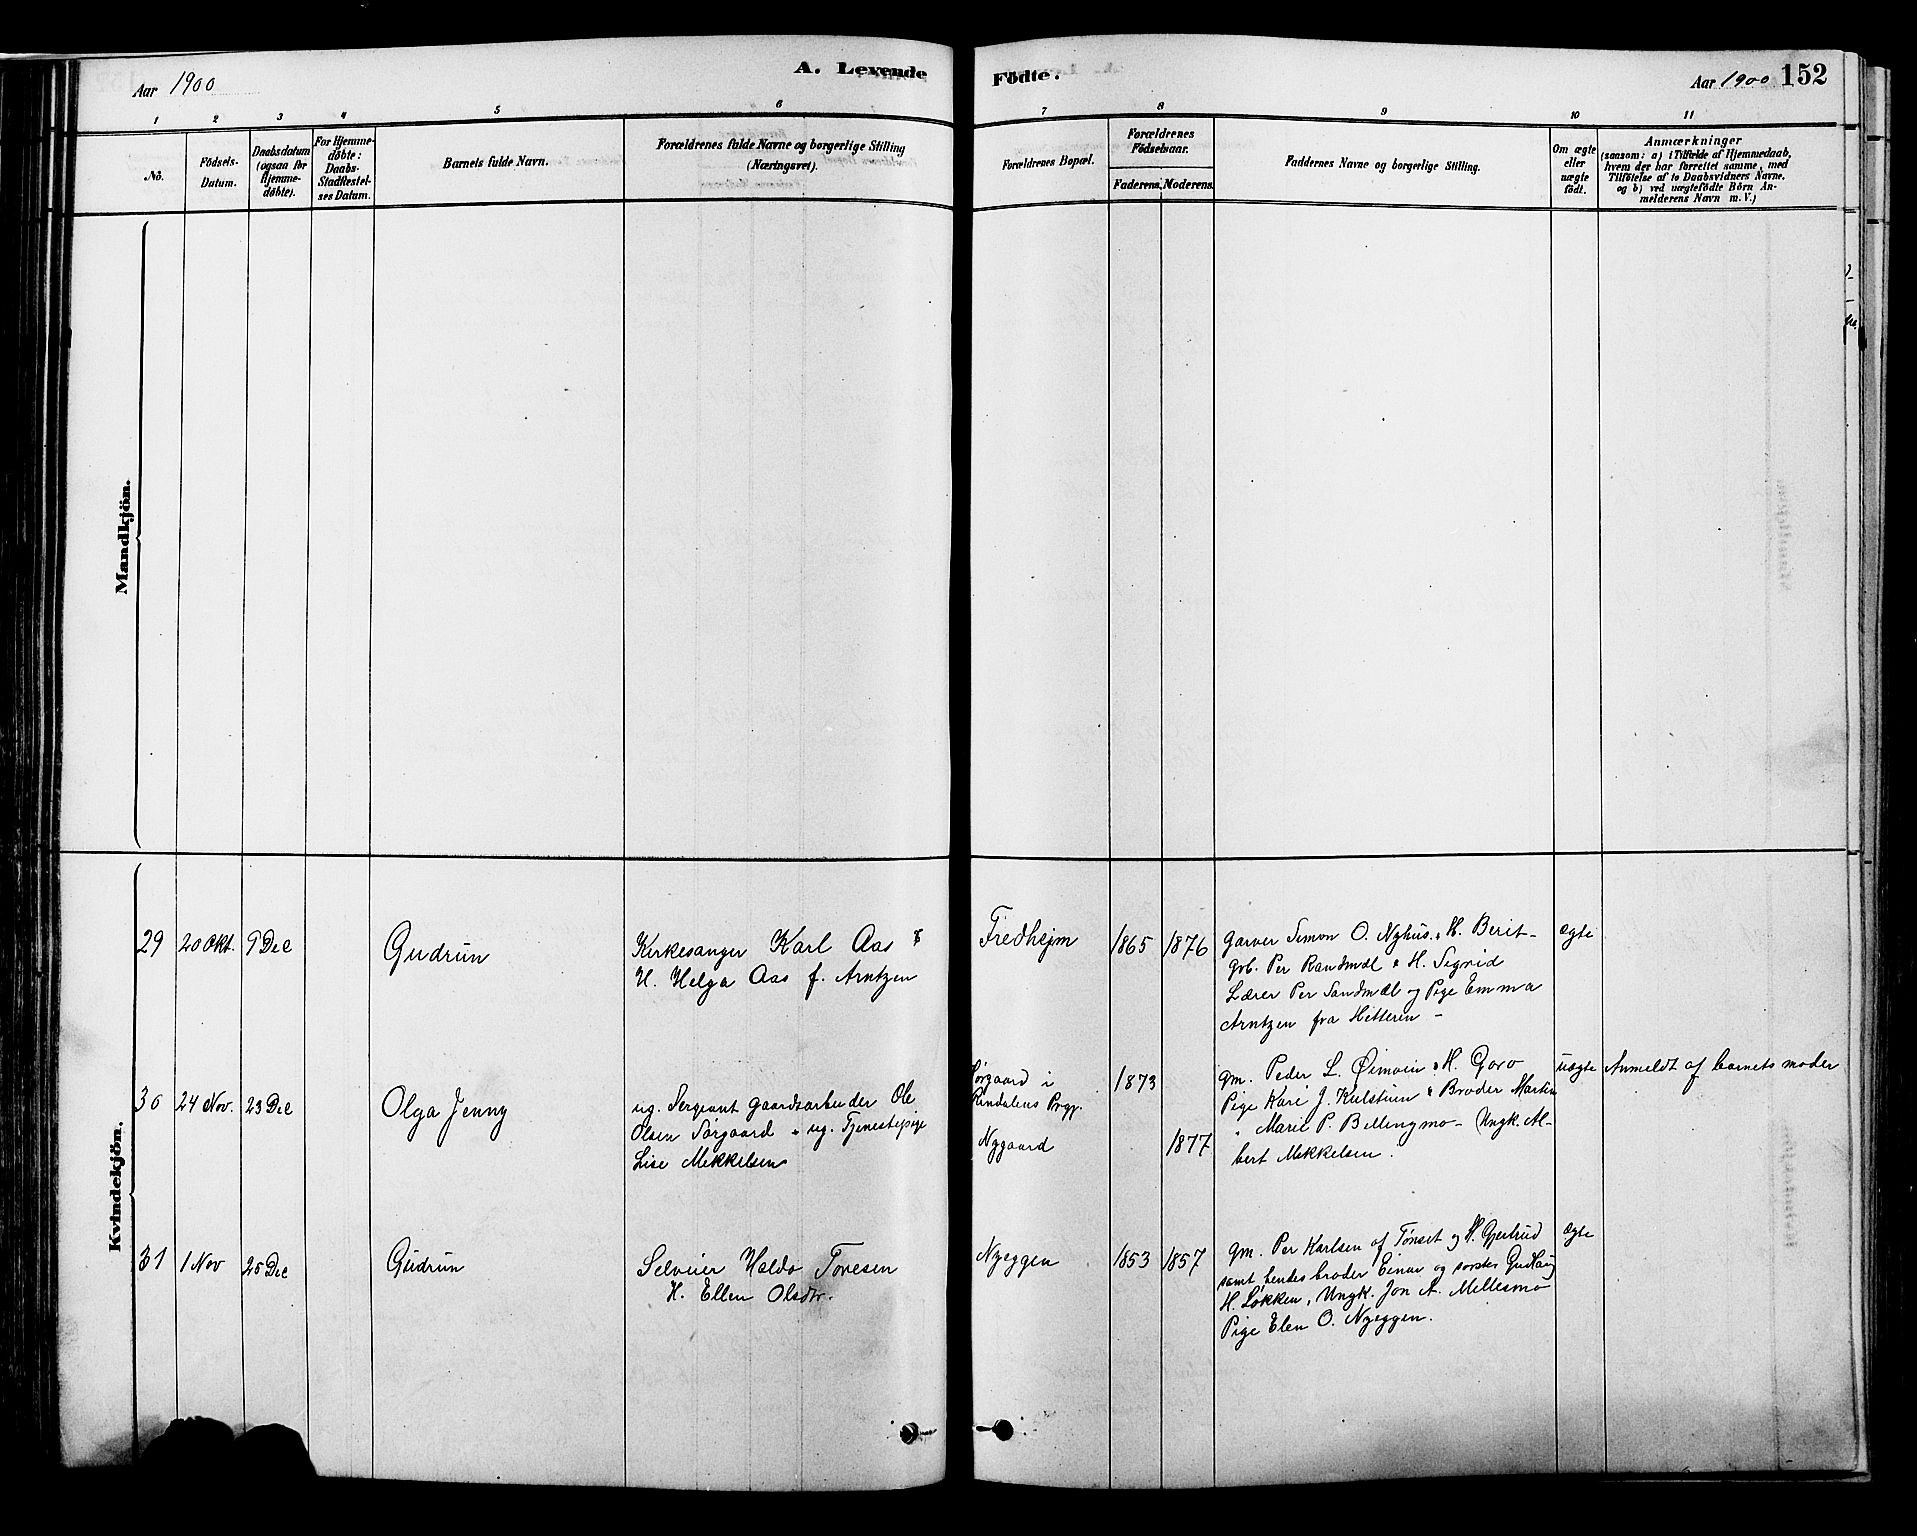 Aar 1900
A. Levende
Födte.
Aar 1900 152
1 2 3 4 5 6 7 8 9 10 11
No.
Födsels-
Datum.
Daabsdatum
(ogsaa for
Hjemme-
døbte).
For Hjemme-
døbte:
Daabs-
Stadfæstel-
ses Datum.
Barnets fulde Navn.
Forældrenes fulde Navne og borgerlige Stilling
(Næringsvei).
Forældrenes Bopæl.
Forældrenes
Födselsaar.
Faderens. Moderens.
Faddernes Navne og borgerlige Stilling.
Om ægte
eller
uægte
födt.
Anmærkninger
(saasom: a) i Tilfælde af Hjemmedaab,
hvem der har forrettet samme, med
Tilføielse af to Daabsvidners Navne,
og b) ved uægtefödte Börn An-
melderens Navn m. V.)
Mandkjön.
Kvindekjön.
29 20 Okt. 9 Dec
Gudrun
Kirkesanger Karl Aas &
H. Helga Aas f. Arntzen
Fredhejm
1865 1876
Garver Simon O. Nyhus & H. Berit -
Grb. Per Randmæl & H. Sigrid
Lærer Per Sandmæl og Pige Emma
Arntzen fra Hitteren -
ægte
30 24 Nov. 23 Dec
Olga Jenny
ug. Sergeant Gaardsarbeider Ole
Olsen Sørgaard & ug. Tjenestepige
Lise Mikkelsen
Sørgaard i
Rindalens Prgj.
Nygaard
1873
1877
gm. Peder L. Øimoen & H. Goro
Pige Kari J. Kulstuen & Broder Martin
" Marie P. Bellingmo - Ungk. Al-
bert Mikkelsen.
uægte
Anmeldt af barnets moder
31 1 Nov 25 Dec
Gudrun
Selveier Haldo Toresen
H. Ellen Olsdtr.
Nyeggen
1853 1857
gm. Per Karlsen af Tønset og H. Gjertrud
samt hendes broder Einar og søster Gudlaug
H. Løkken, Ungk. Jon A. Mellesmo
Pige Elen O. Nyeggen.
ægte